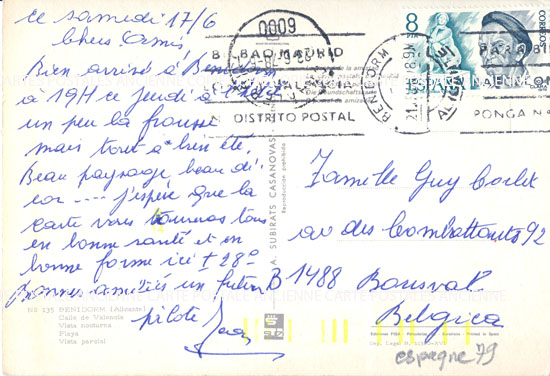 ce samedi 17/6
Chers Amis
Bien arrivé à Benidorm
à 19H ce jeudi à
un peu la frousse
mais tout a bien été.
Beau paysage beau dé-
cor .... j'espère que la
carte vous trouvera tous
en bonne santé et en
bonne forme ici + 28°
Bonnes amitiés un futur
pilote Jean
Famille Guy
av des Combattants 92
B 1488 Bousval
Belgica
espagne 79
0009
BILBAO MADRID
VALENCIA
DISTRITO POSTAL
BENIDORM
ALICANTE
8
CORREOS
ESPAÑA
PARA
PONGA Nº
A. SUBIRATS CASANOVAS
Reproducción prohibida
CARTE POSTALE ANCIENNE
NB 135 BENIDORM (Alicante)
Calle de Valencia
Vista nocturna
Playa
Vista parcial